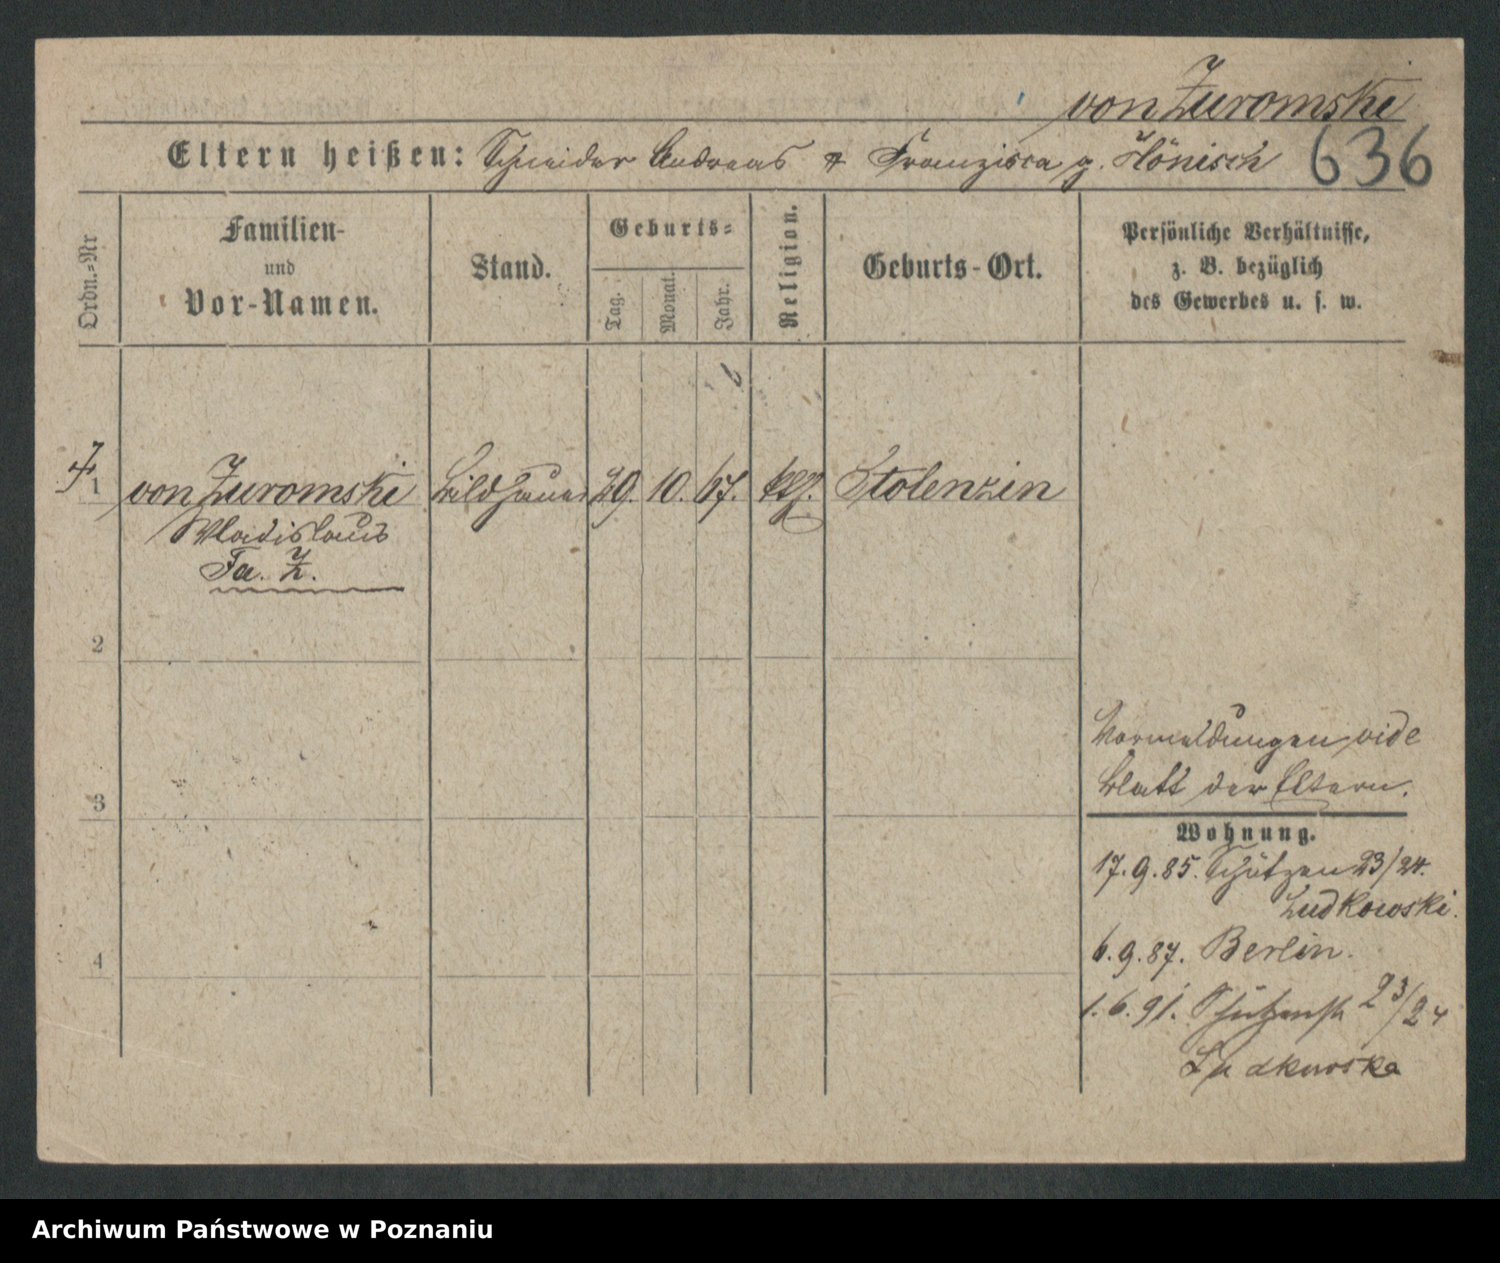 von Zuromski
Eltern heißen: Schneider Andreas & Franzisca g. Hönisch 636
Ordn.=Nr
Familien-
und
Vor-Namen.
Stand.
Geburts=
Tag.
Monat.
Jahr.
Religion.
Geburts-Ort.
Persönliche Verhältnisse,
z. B. bezüglich
des Gewerbes u. s. w.
1 von Zuromski Bildhauer 29. 10. 67. kth. Stolenzin
Wladislaus
Fa. Z.
2
3
4
Vormeldungen vide
Blatt der Eltern.
Wohnung.
17.9.85. Schützen 23/24.
Ludkowski.
6.9.87. Berlin.
1.6.91. Schützenstr 23/24
Ludkowska
Archiwum Państwowe w Poznaniu